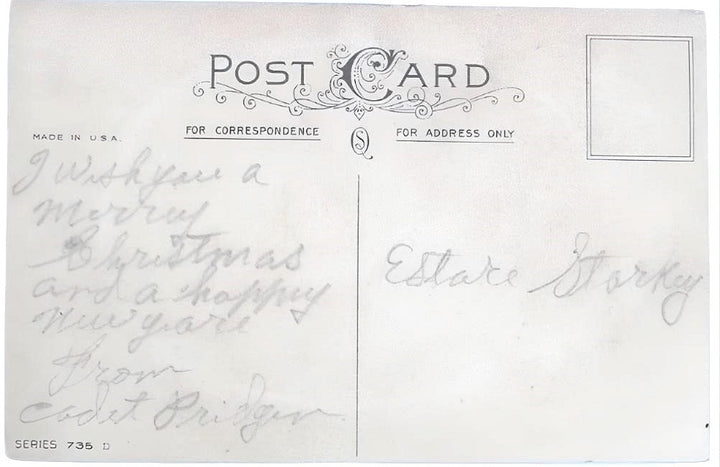 POST CARD
MADE IN U.S.A.
FOR CORRESPONDENCE
FOR ADDRESS ONLY
I wish you a
merry
Christmas
and a happy
new yare
From
cadet Pridgen
Estare Starkey
SERIES 735 D